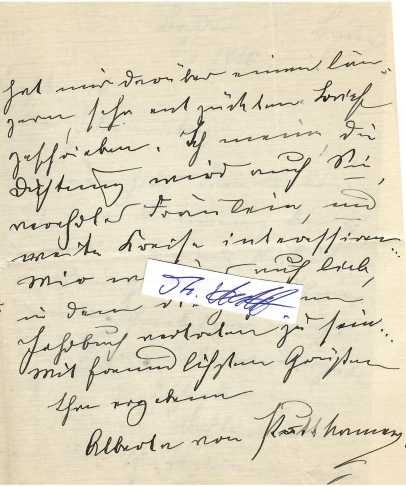 hat mir darüber einen län-
gern, sehr entzückten Brief
geschrieben. Ich meine die
Dichtung wird auch Sie,
verehrtes Fräulein, und
weite Kreise interessiren...
Mir w auch lieb,
in dem
Jahrbuch vertreten zu sein...
Mit freundlichsten Grüßen
Ihre ergebene
Alberta von Puttkamer.